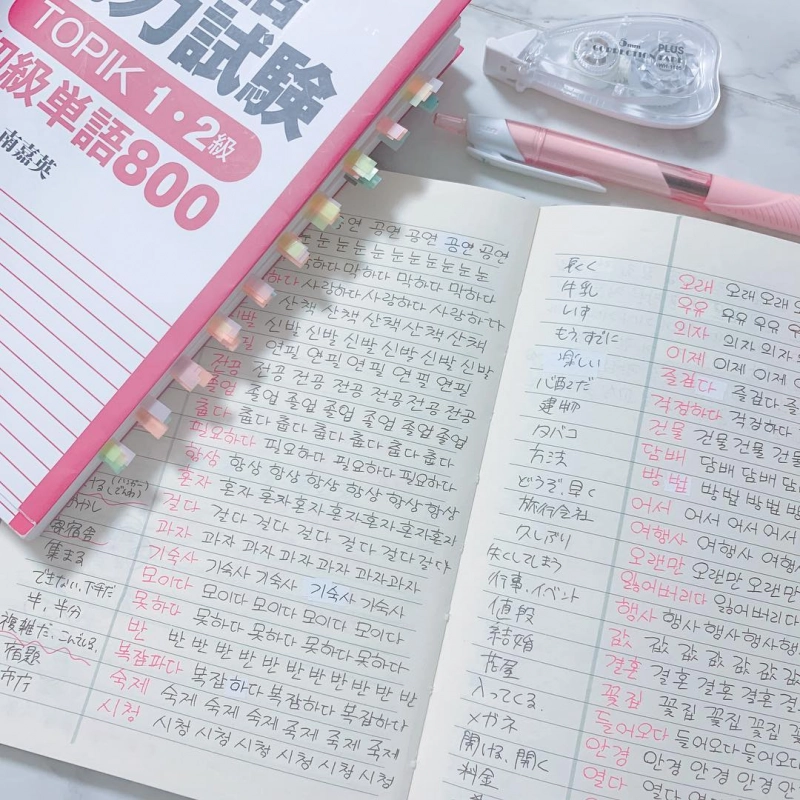 力試験
TOPIK 1・2級
初級単語800
南嘉英
PLUS
CORRECTION TAPE
공연 공연 공연 공연
눈 눈 눈 눈 눈 눈 눈 눈 눈
막하다 막하다 막하다
사랑하다 사랑하다 사랑하다
산책 산책 산책 산책 산책
신발 신발 신발 신발 신발 신발
연필 연필 연필 연필 연필
전공 전공 전공 전공 전공 전공 전공
졸업 졸업 졸업 졸업 졸업 졸업
춥다 춥다 춥다 춥다 춥다 춥다
필요하다 필요하다 필요하다 필요하다
항상 항상 항상 항상 항상 항상 항상
혼자 혼자 혼자 혼자 혼자 혼자 혼자
걸다 걸다 걸다 걸다 걸다 걸다 걸다
과자 과자 과자 과자 과자 과자 과자
寄宿舎 기숙사 기숙사 기숙사 기숙사 기숙사
集まる 모이다 모이다 모이다 모이다 모이다
できない、下手だ 못하다 못하다 못하다 못하다 못하다
半、半分 반 반 반 반 반 반 반 반 반 반 반
複雑だ、こんでいる 복잡하다 복잡하다 복잡하다 복잡하다
宿題 숙제 숙제 숙제 숙제 죽제 죽제 죽제
市庁 시청 시청 시청 시청 시청 시청 시청
長く 오래 오래 오래
牛乳 우유 우유 우유 우유
いす 의자 의자 의자
もう、すでに 이제 이제 이제
楽しい 즐겁다 즐겁다
心配だ 걱정하다 걱정하다
建物 건물 건물 건물 건물
タバコ 담배 담배 담배
方法 방법 방법 방법 방법
どうぞ、早く 어서 어서 어서 어서
旅行会社 여행사 여행사
久しぶり 오랜만 오랜만 오랜만
失くしてしまう 잃어버리다 잃어버리다
行事、イベント 행사 행사 행사 행사
値段 값 값 값 값 값 값
結婚 결혼 결혼 결혼 결혼
花屋 꽃집 꽃집 꽃집 꽃집
入ってくる 들어오다 들어오다 들어오다
メガネ 안경 안경 안경 안경
開ける、開く 열다 열다 열다 열다
料金